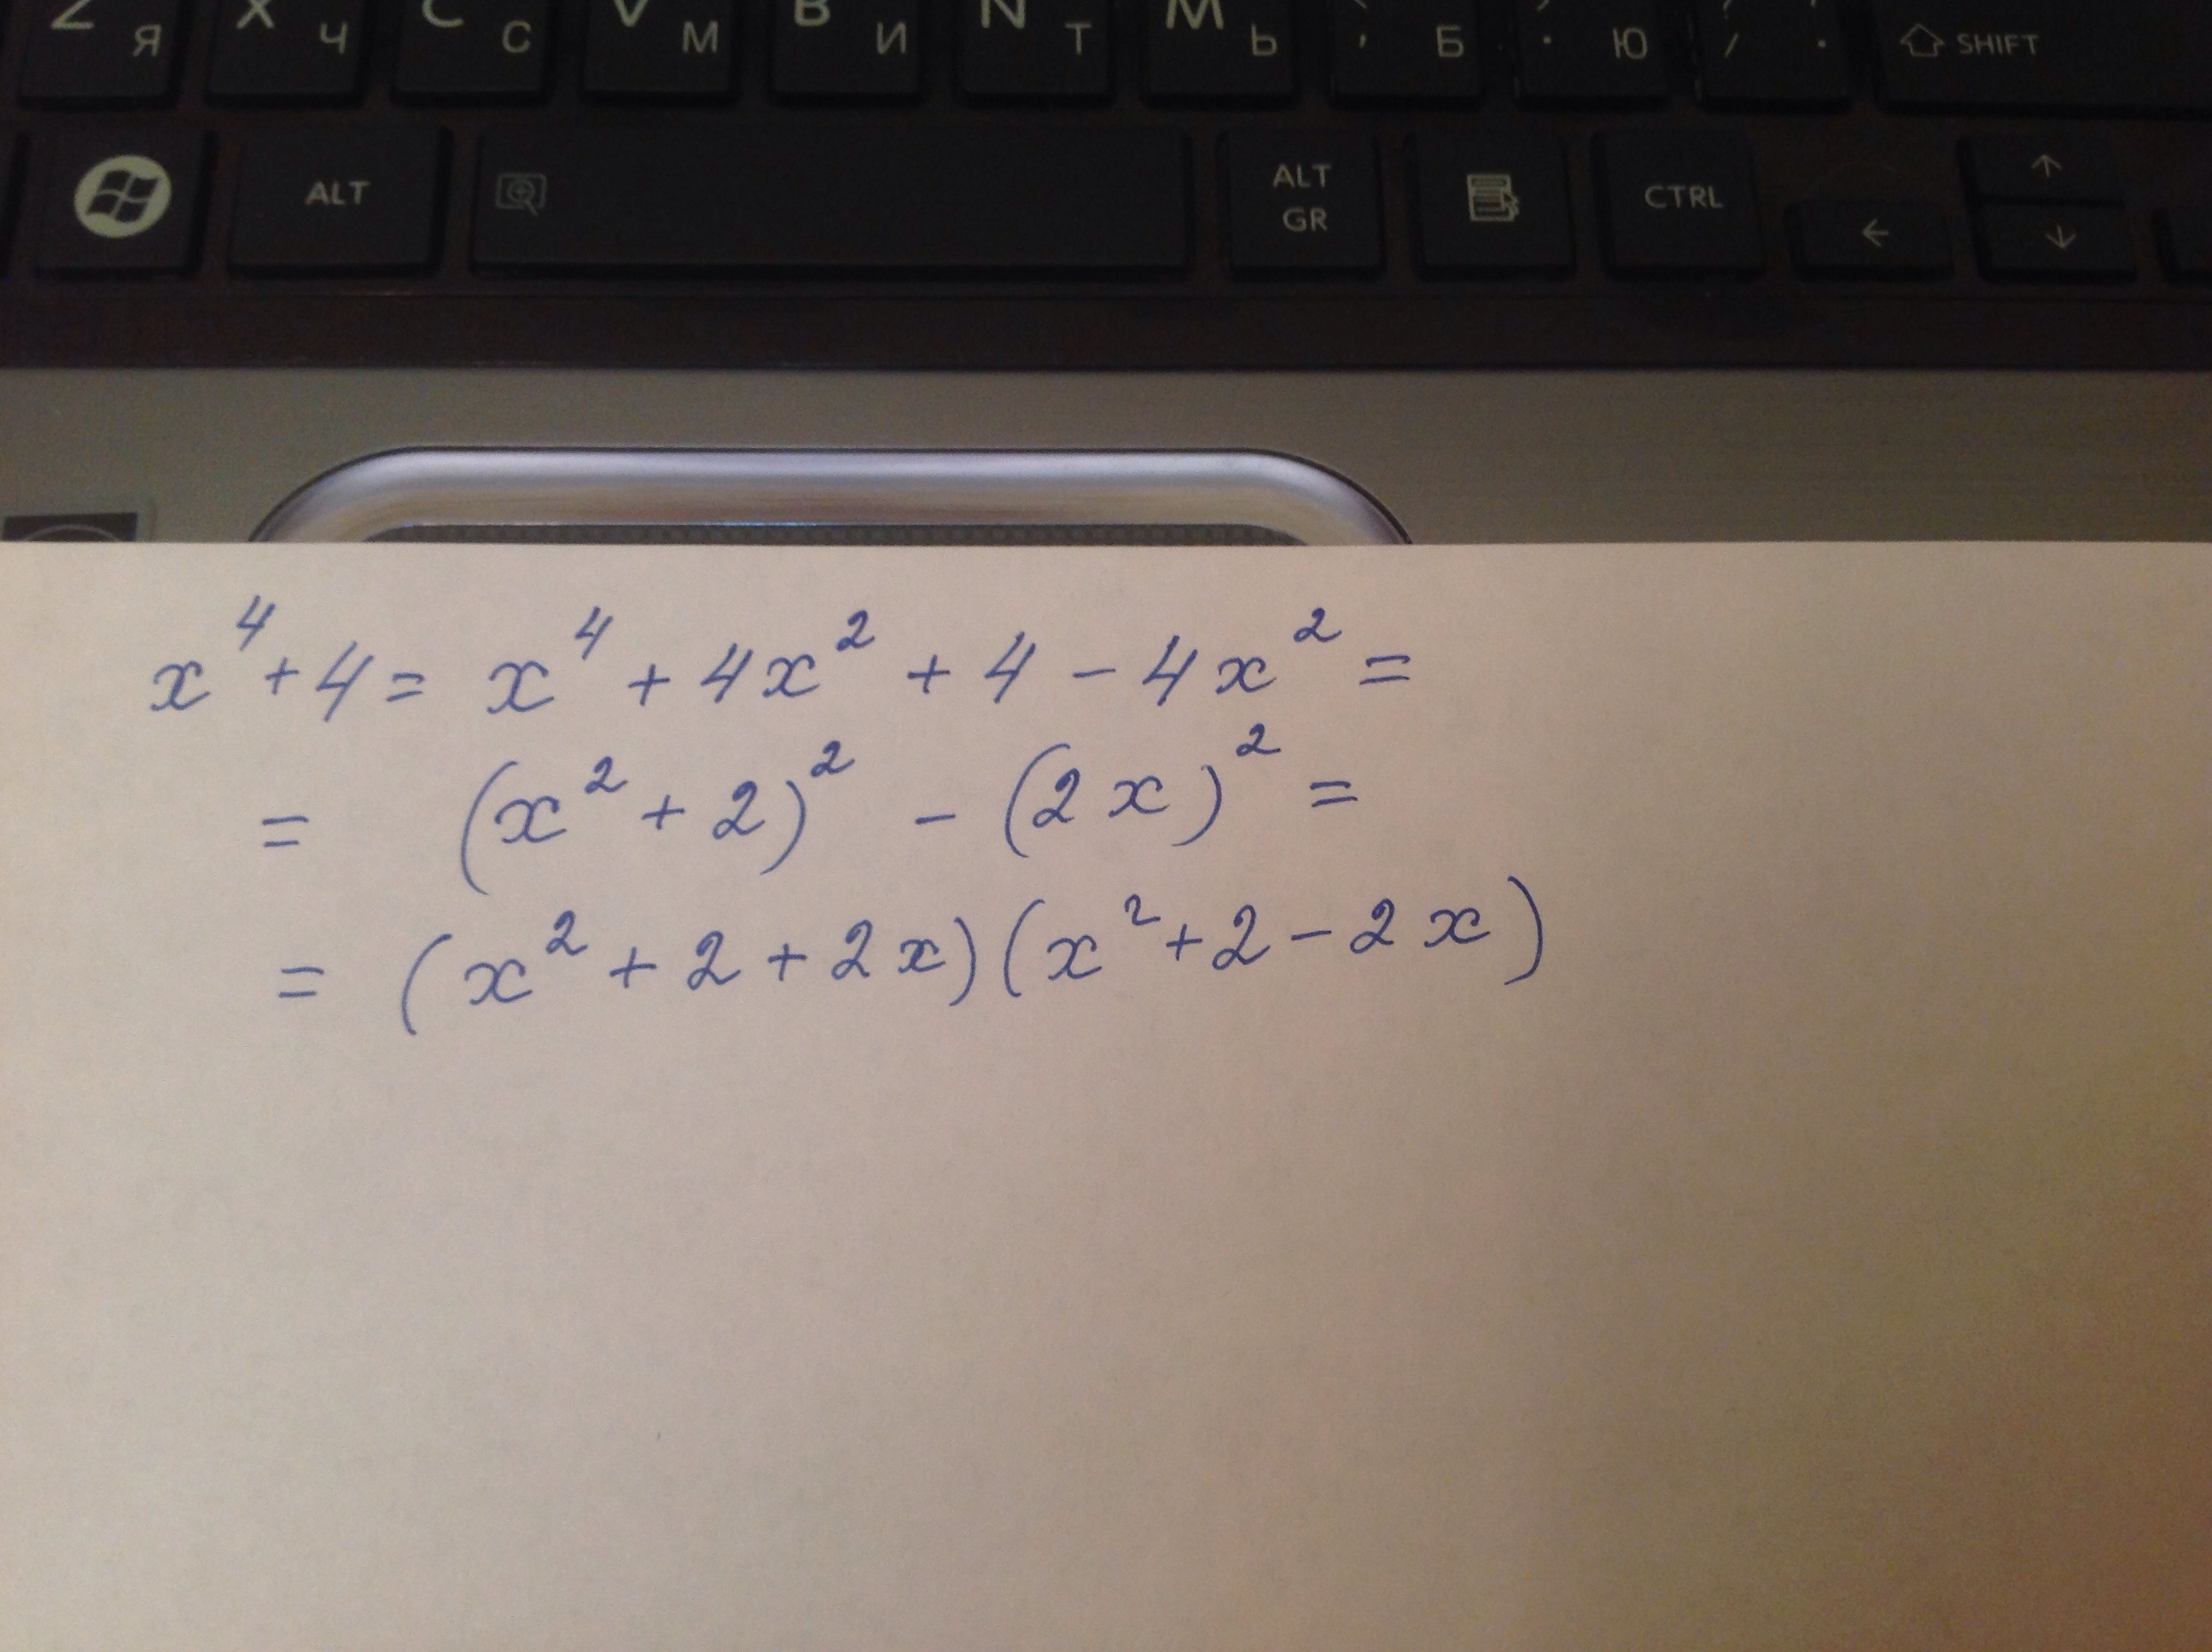 Z Я X Ч C С V М B И N Т M Ь , Б . Ю / . SHIFT
ALT ALT GR CTRL ←  ↑ ↓
x⁴ + 4 = x⁴ + 4x² + 4 − 4x² =
= (x² + 2)² − (2x)² =
= (x² + 2 + 2x)(x² + 2 − 2x)